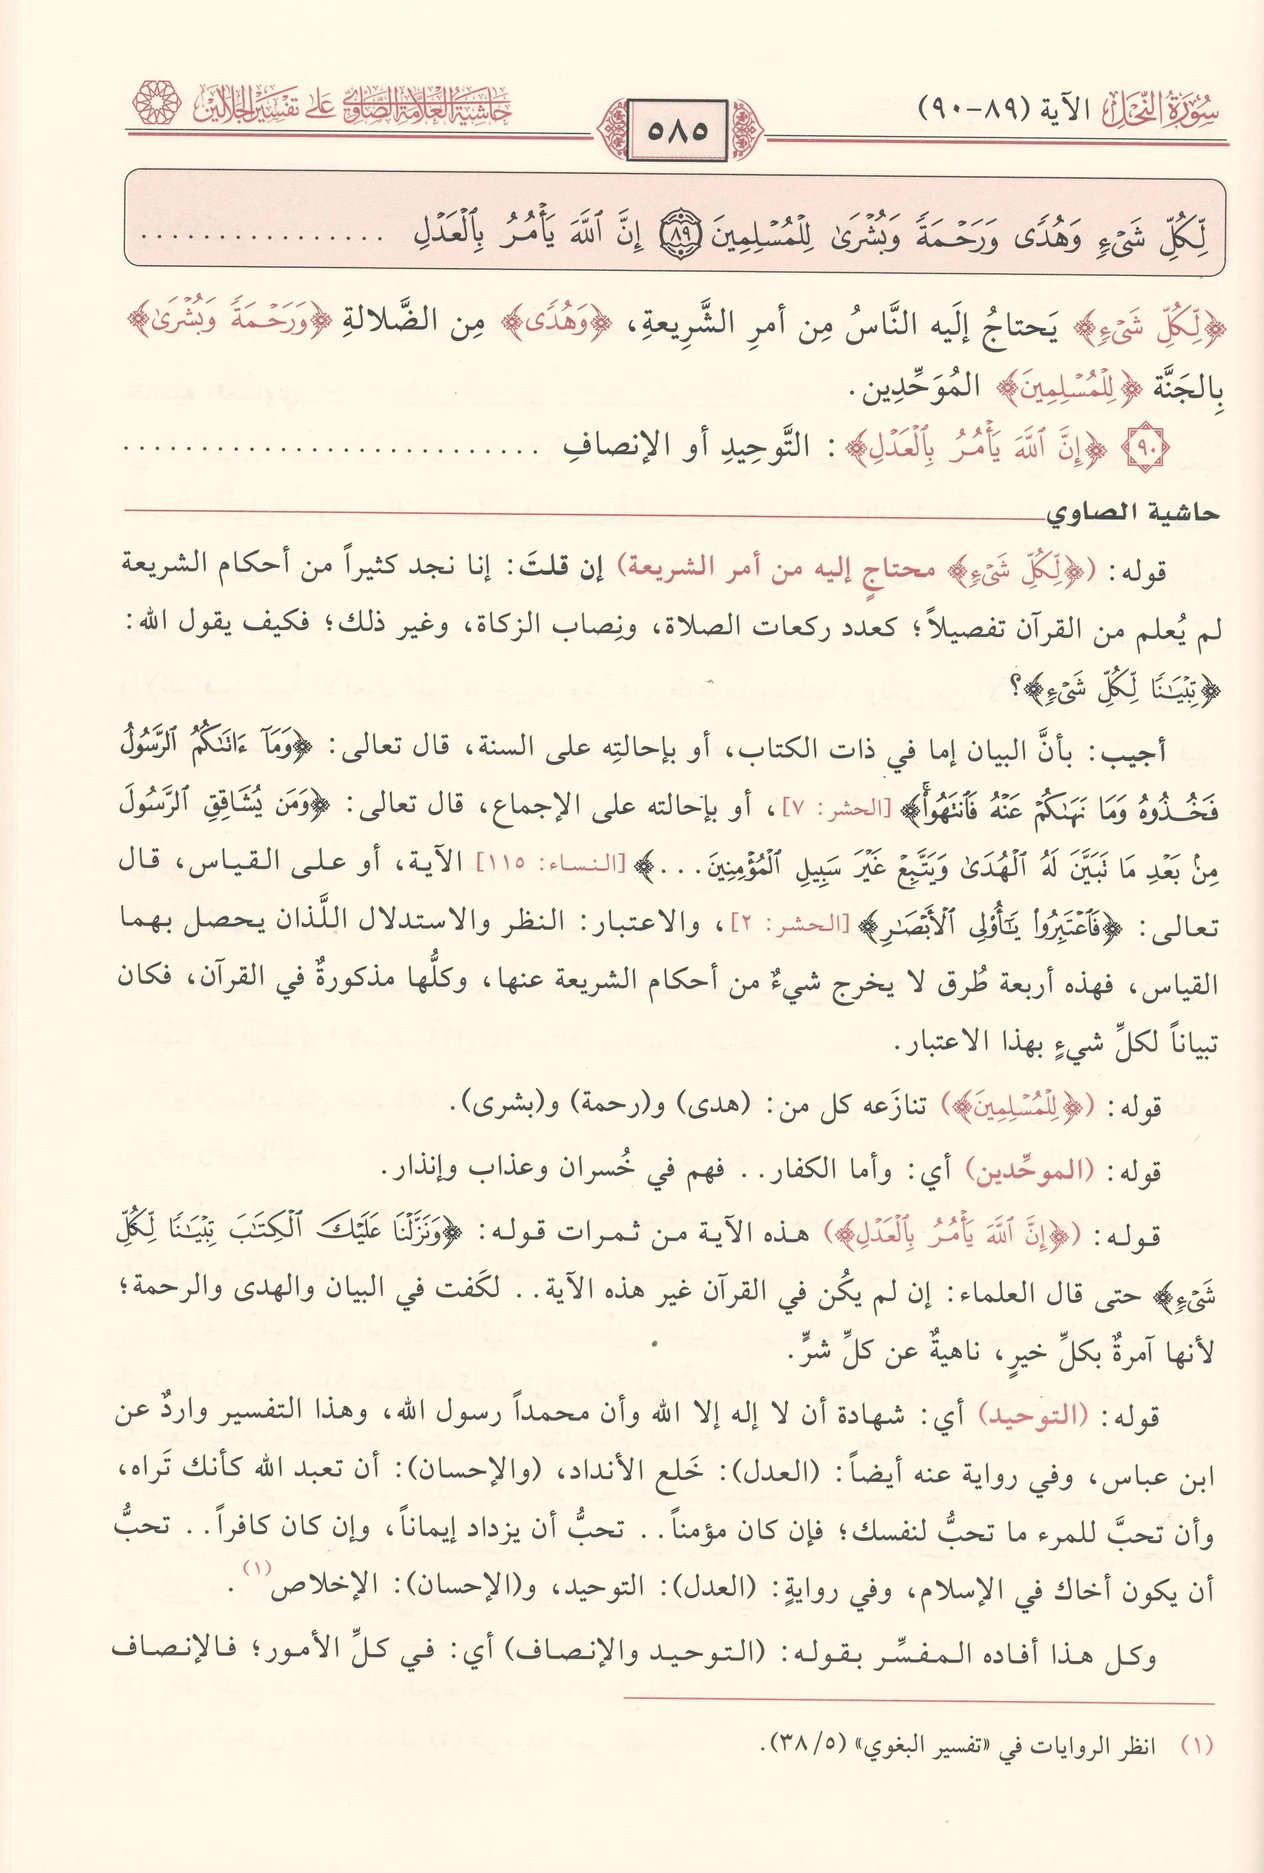 سُورَةُ النَّحْلِ الآية (٨٩-٩٠)
٥٨٥
حَاشِيَةُ العَلَّامَةِ الصَّاوِيّ عَلَى تَفْسِيرِ الجَلَالَيْن
لِّكُلِّ شَيْءٍ وَهُدًى وَرَحْمَةً وَبُشْرَىٰ لِلْمُسْلِمِينَ ٨٩ إِنَّ ٱللَّهَ يَأْمُرُ بِٱلْعَدْلِ ................
﴿لِّكُلِّ شَيْءٍ﴾ يَحتاجُ إلَيه النَّاسُ مِن أمرِ الشَّرِيعةِ، ﴿وَهُدًى﴾ مِن الضَّلالةِ ﴿وَرَحْمَةً وَبُشْرَىٰ﴾
بِالجَنَّة ﴿لِلْمُسْلِمِينَ﴾ المُوَحِّدِين.
٩٠ ﴿إِنَّ ٱللَّهَ يَأْمُرُ بِٱلْعَدْلِ﴾: التَّوحِيدِ أو الإنصافِ ............................
حاشية الصاوي
قوله: (﴿لِّكُلِّ شَيْءٍ﴾ محتاجٍ إليه من أمر الشريعة) إن قلتَ: إنا نجد كثيراً من أحكام الشريعة
لم يُعلم من القرآن تفصيلاً؛ كعدد ركعات الصلاة، ونِصاب الزكاة، وغير ذلك؛ فكيف يقول الله:
﴿تِبْيَـٰنًا لِّكُلِّ شَيْءٍ﴾؟
أجيب: بأنَّ البيان إما في ذات الكتاب، أو بإحالتِه على السنة، قال تعالى: ﴿وَمَآ ءَاتَىٰكُمُ ٱلرَّسُولُ
فَخُذُوهُ وَمَا نَهَىٰكُمْ عَنْهُ فَٱنتَهُواْ﴾ [الحشر: ٧]، أو بإحالته على الإجماع، قال تعالى: ﴿وَمَن يُشَاقِقِ ٱلرَّسُولَ
مِنۢ بَعْدِ مَا تَبَيَّنَ لَهُ ٱلْهُدَىٰ وَيَتَّبِعْ غَيْرَ سَبِيلِ ٱلْمُؤْمِنِينَ...﴾ [النساء: ١١٥] الآية، أو على القياس، قال
تعالى: ﴿فَٱعْتَبِرُواْ يَـٰٓأُوْلِى ٱلْأَبْصَـٰرِ﴾ [الحشر: ٢]، والاعتبار: النظر والاستدلال اللَّذان يحصل بهما
القياس، فهذه أربعة طُرق لا يخرج شيءٌ من أحكام الشريعة عنها، وكلُّها مذكورةٌ في القرآن، فكان
تبياناً لكلِّ شيءٍ بهذا الاعتبار.
قوله: (﴿لِلْمُسْلِمِينَ﴾) تنازَعه كل من: (هدى) و(رحمة) و(بشرى).
قوله: (الموحِّدين) أي: وأما الكفار.. فهم في خُسران وعذاب وإنذار.
قوله: (﴿إِنَّ ٱللَّهَ يَأْمُرُ بِٱلْعَدْلِ﴾) هذه الآية من ثمرات قوله: ﴿وَنَزَّلْنَا عَلَيْكَ ٱلْكِتَـٰبَ تِبْيَـٰنًا لِّكُلِّ
شَيْءٍ﴾ حتى قال العلماء: إن لم يكُن في القرآن غير هذه الآية.. لكَفت في البيان والهدى والرحمة؛
لأنها آمرةٌ بكلِّ خيرٍ، ناهيةٌ عن كلِّ شرٍّ.
قوله: (التوحيد) أي: شهادة أن لا إله إلا الله وأن محمداً رسول الله، وهذا التفسير واردٌ عن
ابن عباس، وفي رواية عنه أيضاً: (العدل): خَلع الأنداد، (والإحسان): أن تعبد الله كأنك تَراه،
وأن تحبَّ للمرء ما تحبُّ لنفسك؛ فإن كان مؤمناً.. تحبُّ أن يزداد إيماناً، وإن كان كافراً.. تحبُّ
أن يكون أخاك في الإسلام، وفي روايةٍ: (العدل): التوحيد، و(الإحسان): الإخلاص(١).
وكل هذا أفاده المفسِّر بقوله: (التوحيد والإنصاف) أي: في كلِّ الأمور؛ فالإنصاف
(١) انظر الروايات في «تفسير البغوي» (٣٨/٥).